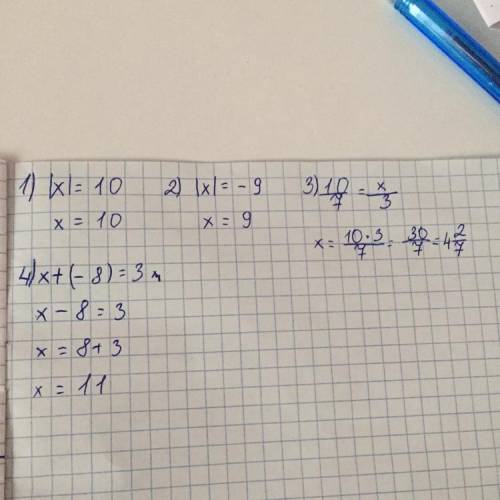 1) |x| = 10
x = 10
2) |x| = - 9
x = 9
3) 10/7 = x/3
x = 10·3/7 = 30/7 = 4 2/7
4) x + (- 8) = 3
x - 8 = 3
x = 8 + 3
x = 11